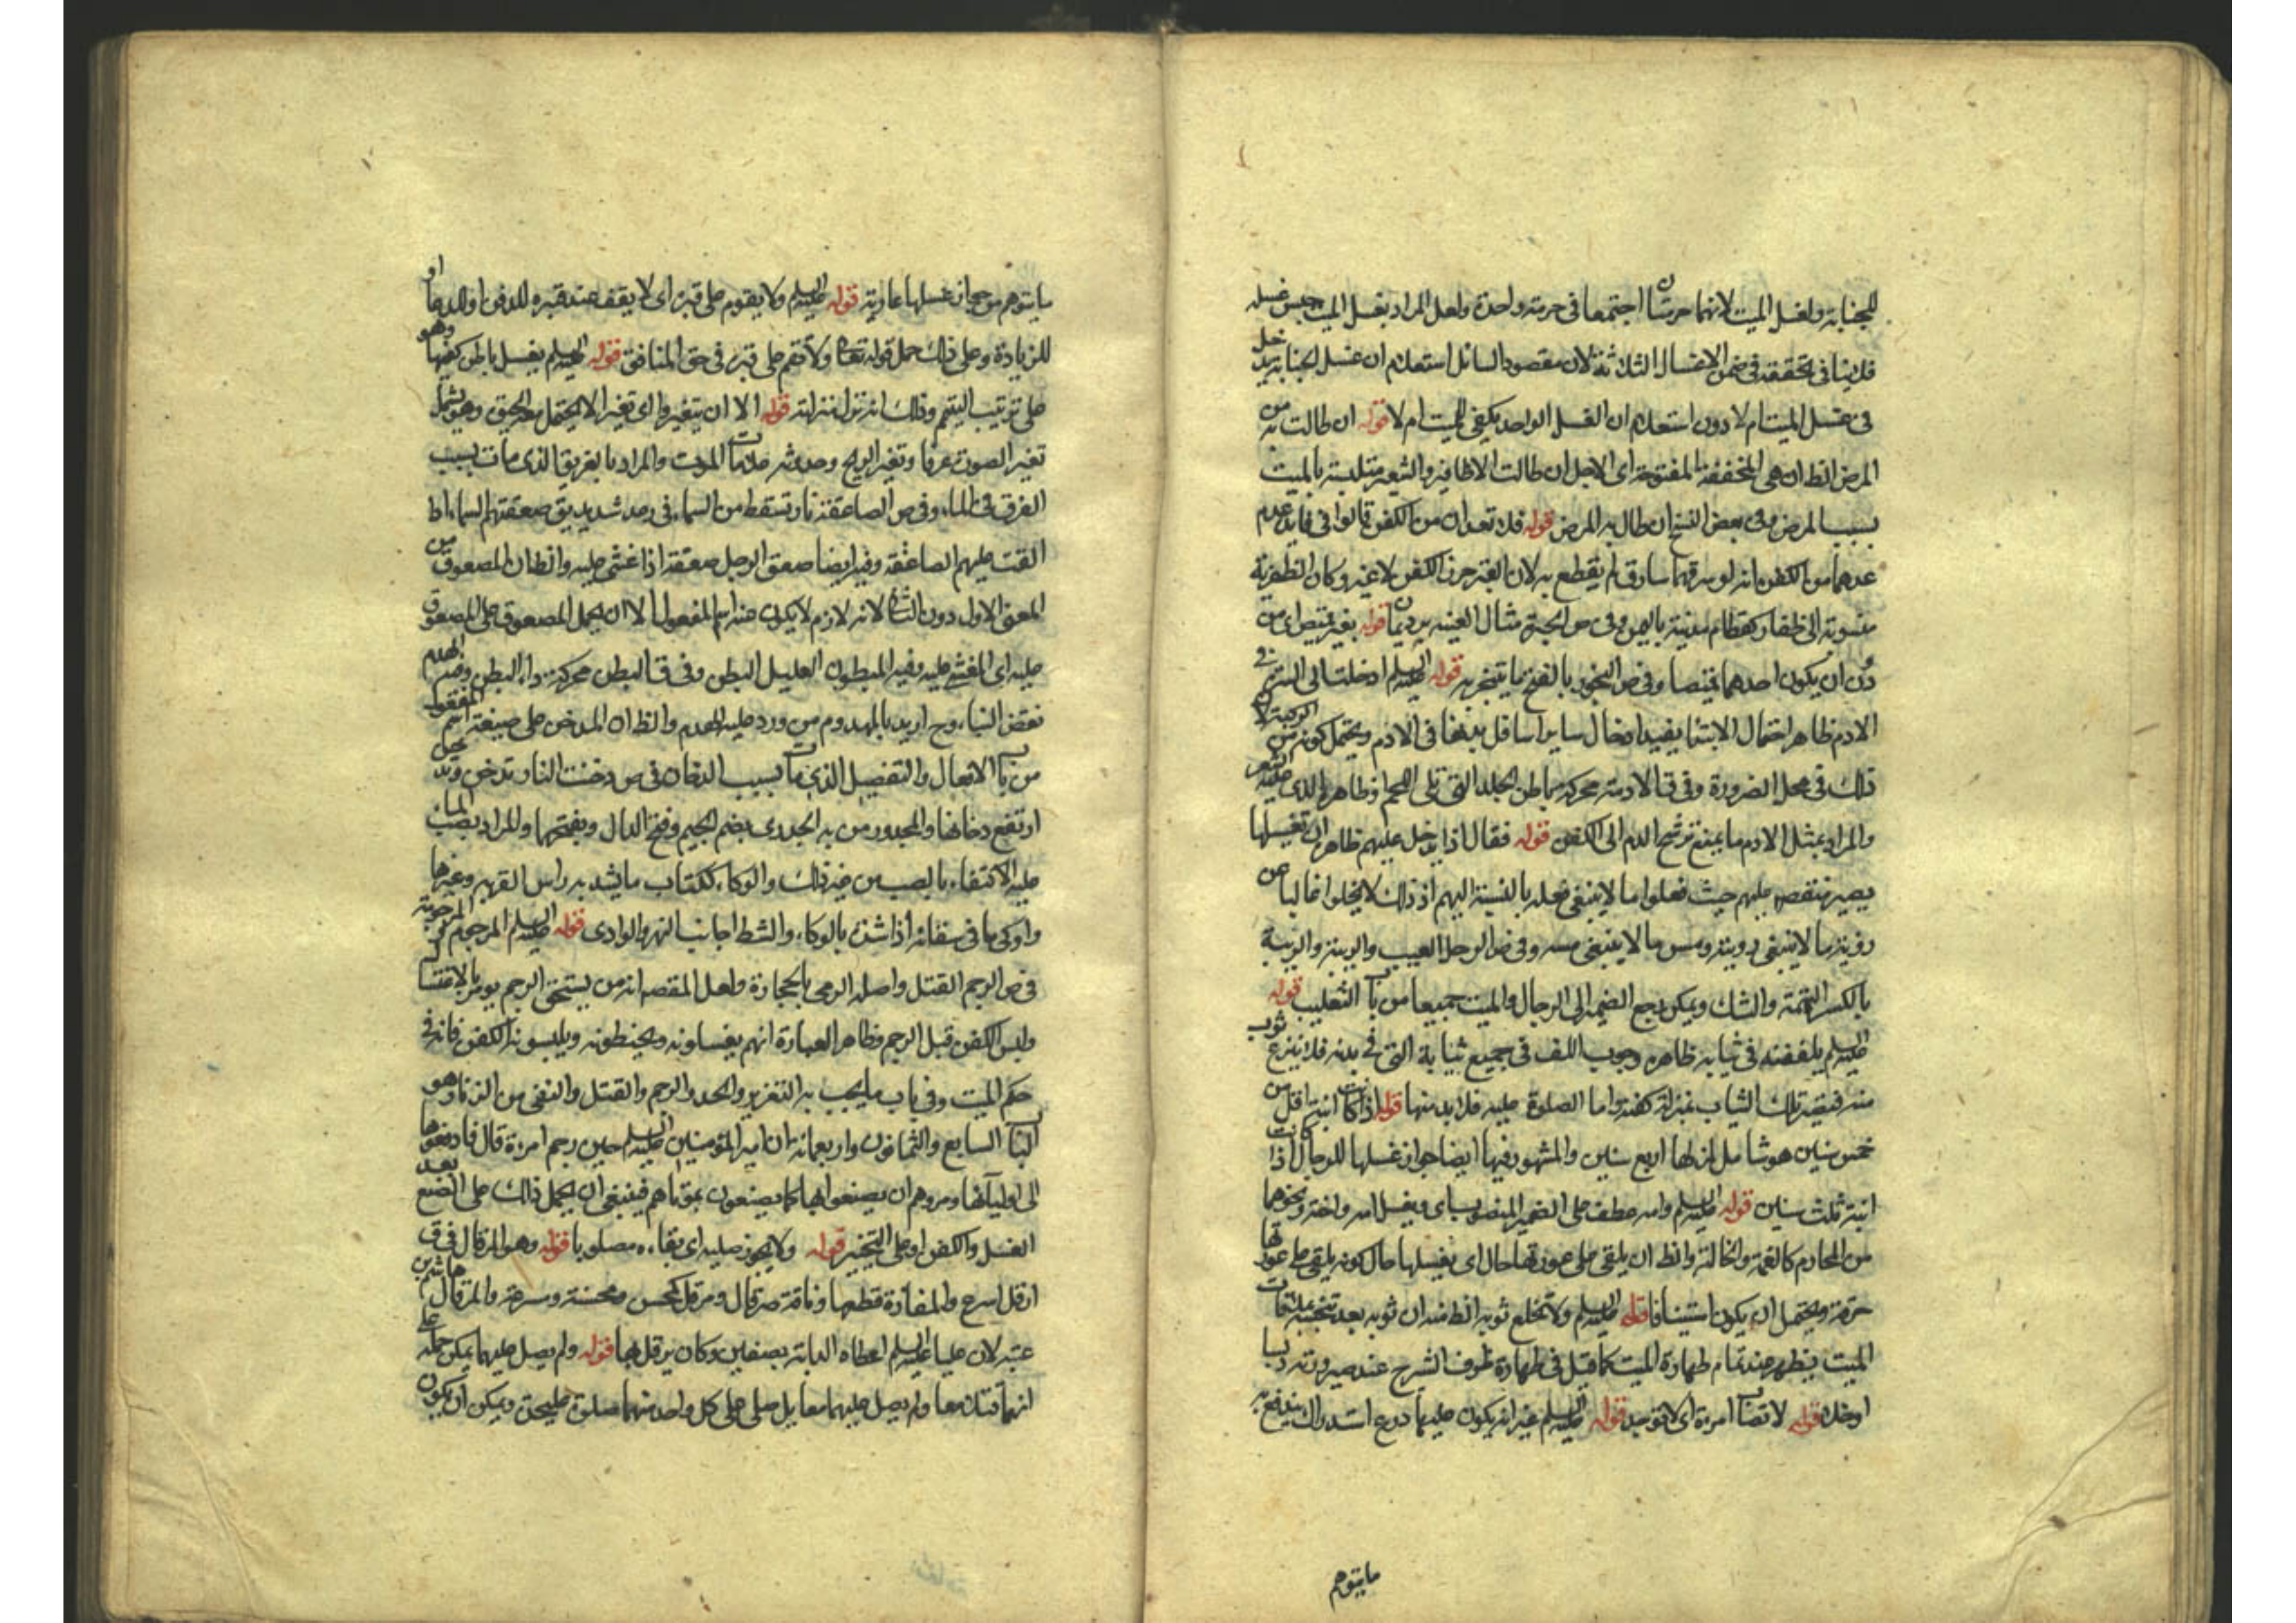 للجنابة ولغسل الميت لانهما حرمتان اجتمعا في حرمة واحدة ولعل المراد بغسل الميت جنس غسله
فلا ينافي تحققه في ضمن الاغسال الثلاثة لان مقصود السائل استعلام ان غسل الجنابة يدخل
في غسل الميت ام لا دون استعلام ان الغسل الواحد يكفي للميت ام لا قوله ان طالت به من
المرض الظ ان هي المخففة المفتوحة اى الاجل ان طالت الاظافير والشعر متلبسة بالميت
بسبب المرض وفى بعض النسخ ان طال به المرض قوله فلا تعد ان من الكفن قالوا في فايدة عدم
عدهما من الكفن انه لو سرقهما سارق لم يقطع به لان القبر حرز الكفن لا غيره وكان الظفرية
منسوبة الى ظفار كقطام مدينة باليمن وفى ص الحبرة مثال العنبه برد يمان قوله بغير قميص اى من
دون ان يكون احدهما قميصا وفى ص البخور بالفتح ما يتبخر به قوله عليه السلم ادخلت الى السرة في
الادم ظاهر احتمال الابتنا يفيد ادخال ساير اسافل بدنها في الادم ويحتمل كونه من الركبة لان
ذلك في محل الضرورة وفى ق الادمة محركة باطن الجلد التى تلى اللحم او ظاهره الذى عليه الشعر
والمراد بمثل الادم ما يمنع ترشح الدم الى الكفن قوله فقال اذا يدخل عليهم ظاهر ان تغسيلها
يصير منقصه عليهم حيث فعلوا ما لا ينبغى فعله بالنسبة اليهم اذ ذلك لا يخلوا غالبا عن
رؤية ما لا ينبغى رويته ومس ما لا ينبغى مسه وفى ص الرجل العيب والريبة والريبة
بالكسر التهمة والشك ويمكن رجع الضمير الى الرجال والميت جميعا من باب التغليب قوله
عليه السلم يلففنه في ثيابه ظاهره وجوب اللف في جميع ثيابه التى في بدنه فلا ينزع ثوب
منه فيصير تلك الثياب بمنزلة كفنه واما الصلوة عليه فلا بد منها قوله اذا كانت ابنة اقل من
خمس سنين هو شامل لمن لها اربع سنين والمشهور فيها ايضا جواز غسلها للرجال اذا كانت
ابنة ثلث سنين قوله عليه السلم وامه عطف على الضمير المنصوب اى ويغسل امه واخته ونحوهما
من المحارم كالعمة والخالة والظ ان يلقى على عورتها حال اى يغسلها حال كونه يلقى على عورتها
خرقة ويحتمل ان يكون استينافا قوله عليه السلم ولا تخلع ثوبه الظ منه ان ثوبه بعد تنجسه بملاقات
الميت يطهر عند تمام طهارة الميت كما قيل في طهارة ظروف الشيرج عند صيرورته دبسا
او خلا قوله لا تصاب امرءة اى لا توجد قوله عليه السلم غير انه يكون عليها درع استدراك يندفع به
ما يتوهم
ما يتوهم من جواز غسلها عارية قوله عليه السلم ولا يقوم على قبره اى لا يقف عند قبره للدفن او الدعا او
للزيادة وعلى ذلك حمل قوله تعالى ولا تقم على قبره في حق المنافق قوله عليه السلم يغسل باطن كفيها وهو
على ترتيب التيمم وذلك انه نزل منزلته قوله الا ان يتغيروا اى تغيرا لا يحتمل معه الحيوة وهو يشمل
تغير الصوت عرفا وتغير الريح وحدوثه علامات الموت والمراد بالغريق الذى مات بسبب
الغرق في الماء وفى ص الصاعقة نار تسقط من السماء في رعد شديد يق صعقتهم السماء اذا
القت عليهم الصاعقة وفيه ايضا صعق الرجل صعقة اذا غشى عليه والظ ان المصعوق من
المعنى الاول دون الثانى لانه لازم لا يكون منه اسم المفعول الا ان يحمل المصعوق على المصعوق
عليه اى المغشى عليه وفيه المبطون العليل البطن وفى ق البطن محركة داء البطن وفيه الهدم
نقض البناء وح اريد بالمهدوم من ورد عليه الهدم والظ ان المدخن على صيغة اسم المفعول
من باب الافعال والتفعيل الذى مات بسبب الدخان في ص دخنت النار تدخن وتدخل
ارتفع دخانها والمجدور من به الجدرى بضم الجيم وفتح الدال وبفتحهما والمراد بصب الماء
عليه الاكتفاء بالصب من غير ذلك والوكاء ككتاب ما يشد به راس القربة وغيرها
واوكى ما في سقائه اذا شده بالوكاء والشط جانب النهر والوادى قوله عليه السلم المرجوم والمرجومة
في ص الرجم القتل واصله الرمى بالحجارة ولعل المقصد انه من يستحق الرجم يومر بالاغتسال
ولبس الكفن قبل الرجم وظاهر العبارة انهم يغسلونه ويحنطونه ويلبسونه الكفن فانه في
حكم الميت وفى باب ما يجب به التعزير والحد والرجم والقتل والنفى من الزنا وهو
الباب السابع والثمانون واربعمائة ان امير المؤمنين عليه السلم حين رجم امرءة قال فادفعوها
الى اوليائها ومروهم ان يصنعوا بها كما يصنعون بموتاهم فينبغى ان يحمل ذلك على الصنع بعد
الغسل والكفن او على التخيير قوله ولا يجوز صلبه اى بقاءه مصلوبا قوله وهو المرقال في ق
ارقل اسرع والمفازة قطعها وناقة مرقال ومرقل كمحسن ومحسنة وسرعة والمرقال هاشم بن
عتبه لان عليا عليه السلم اعطاه الراية بصفين وكان يرقل بها قوله ولم يصل عليهما يمكن حمله على
انهما قتلا معا ولم يصل عليهما معا بل صلى على كل واحد منهما صلوة عليحدة ويمكن ان يكون